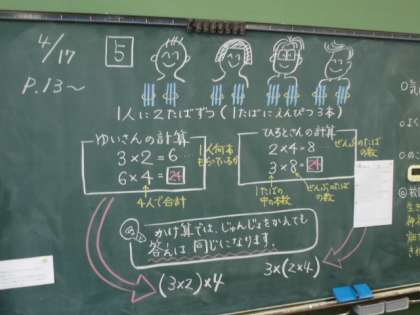 4/17
5
P.13〜
1人に2たばずつ（1たばにえんぴつ3本）
ゆいさんの計算
3×2=6…
1人何本もらっているか
6×4=24
4人で合計
ひろとさんの計算
2×4=8…
ぜんぶのたばの数
3×8=24
1たばの中の本数
ぜんぶのたばの数
かけ算では、じゅんじょをかえても
答えは同じになります。
(3×2)×4
3×(2×4)